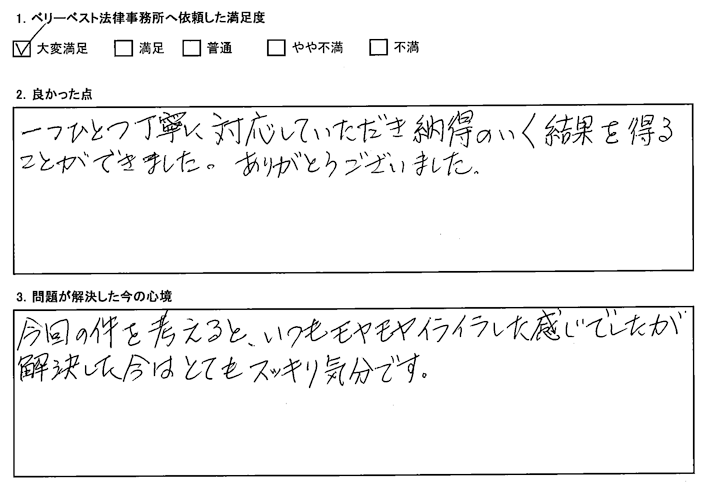 1. ベリーベスト法律事務所へ依頼した満足度
☑ 大変満足 □ 満足 □ 普通 □ やや不満 □ 不満
2. 良かった点
一つひとつ丁寧に対応していただき納得のいく結果を得る
ことができました。ありがとうございました。
3. 問題が解決した今の心境
今回の件を考えると、いつもモヤモヤイライラした感じでしたが
解決した今はとてもスッキリ気分です。